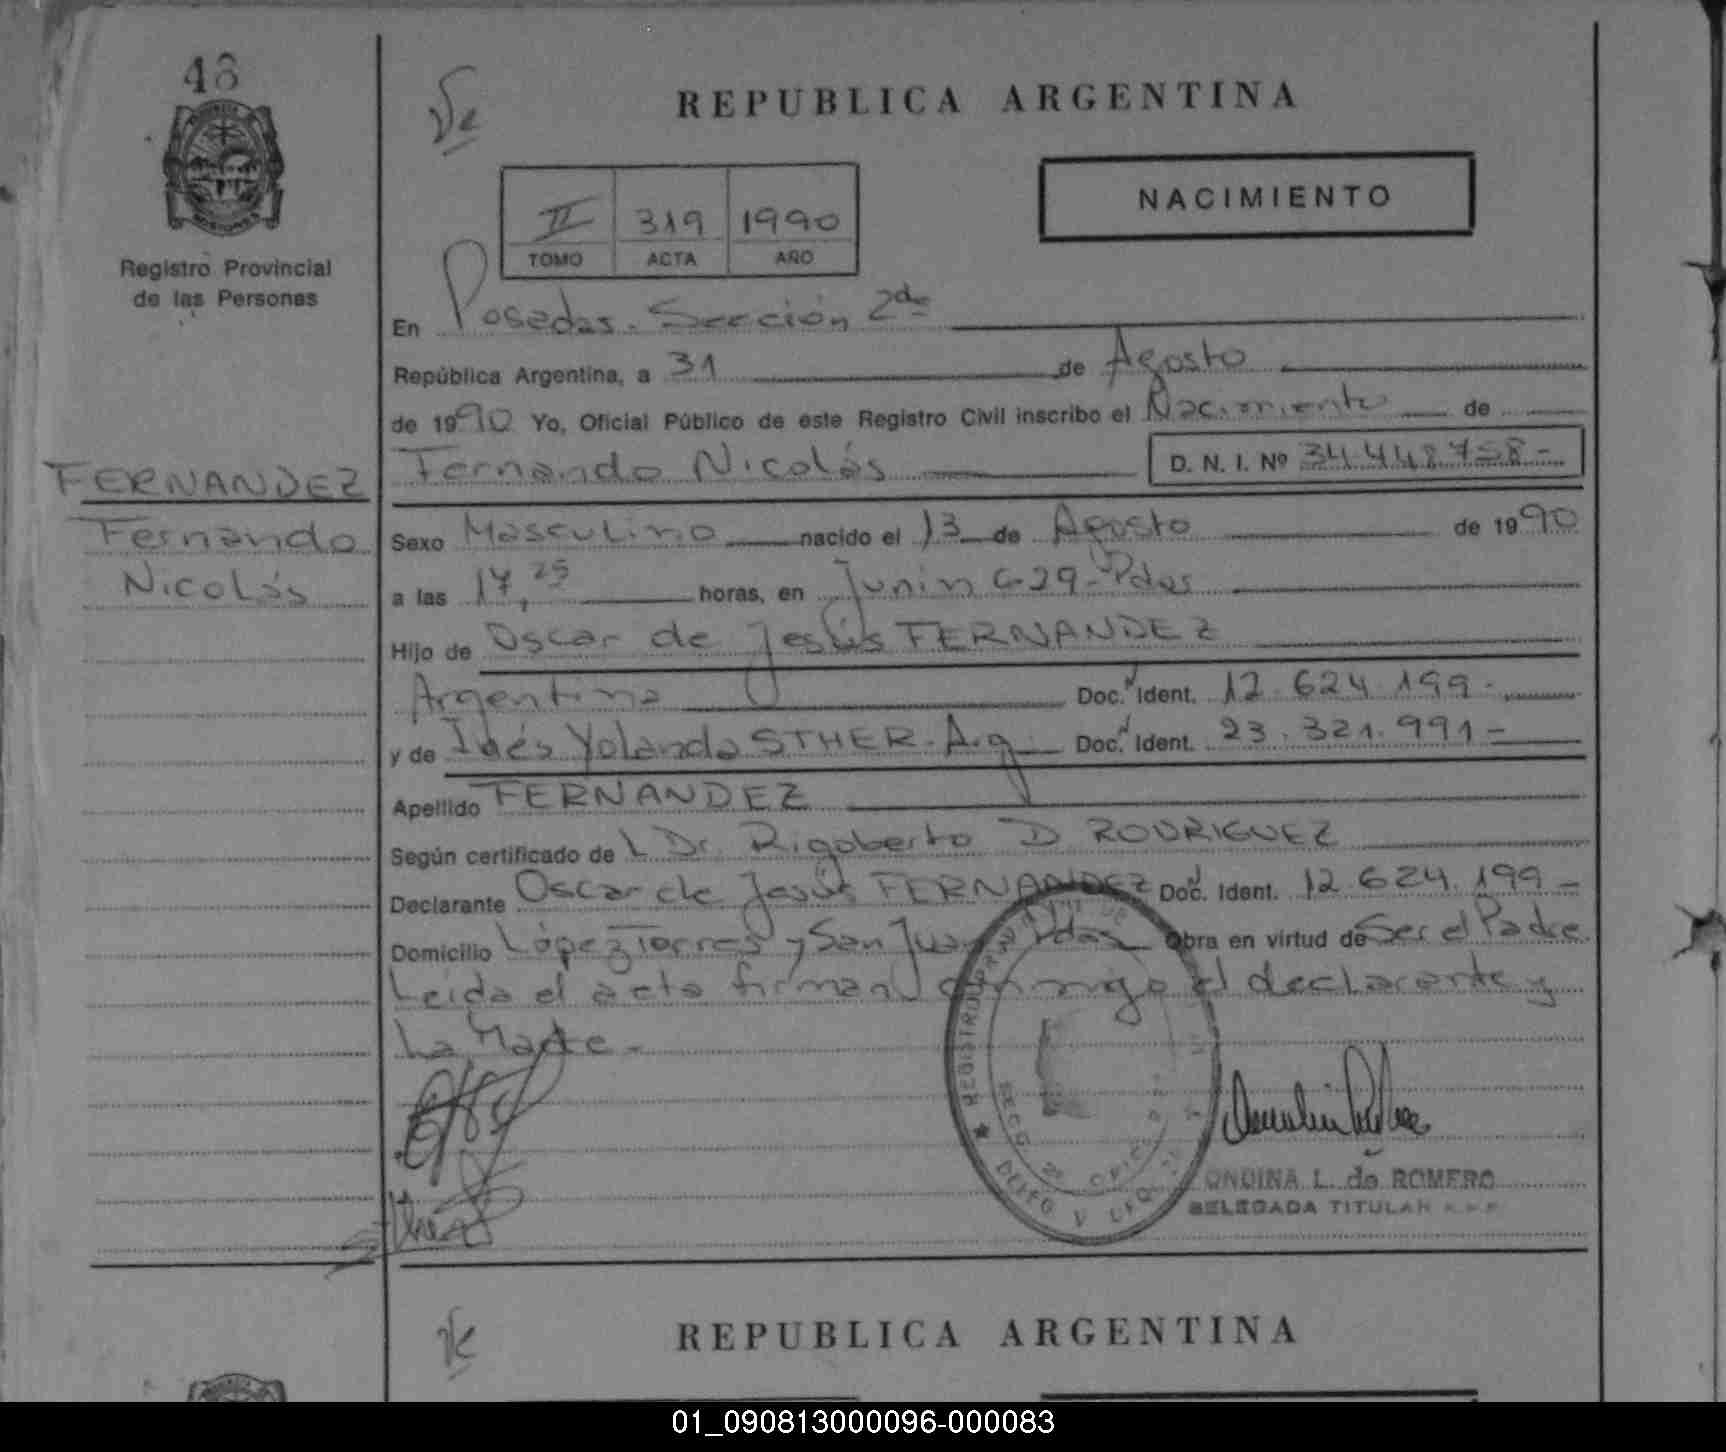 48
Registro Provincial
de las Personas
REPUBLICA ARGENTINA
NACIMIENTO
II 319 1990
TOMO ACTA AÑO
En Posadas. Sección 2da
República Argentina, a 31 de Agosto
de 1990 Yo, Oficial Público de este Registro Civil inscribo el Nacimiento de
Fernando Nicolás D. N. I. Nº 34.448.758-
FERNANDEZ
Fernando
Nicolás
Sexo Masculino nacido el 13 de Agosto de 1990
a las 17,25 horas, en Junin 629-Pdas
Hijo de Oscar de Jesús FERNANDEZ
Argentina Doc. Ident. 12.624.199-
y de Inés Yolanda STHER-Arg Doc. Ident. 23.321.991-
Apellido FERNANDEZ
Según certificado de L Dr. Rigoberto D RODRIGUEZ
Declarante Oscar de Jesús FERNANDEZ Doc. Ident. 12.624.199-
Domicilio López Torres y San Juan Pdas Obra en virtud de Ser el Padre
Leida el acta firman conmigo el declarante y
La Madre-
ONDINA L. de ROMERO
DELEGADA TITULAR
REPUBLICA ARGENTINA
01_090813000096-000083